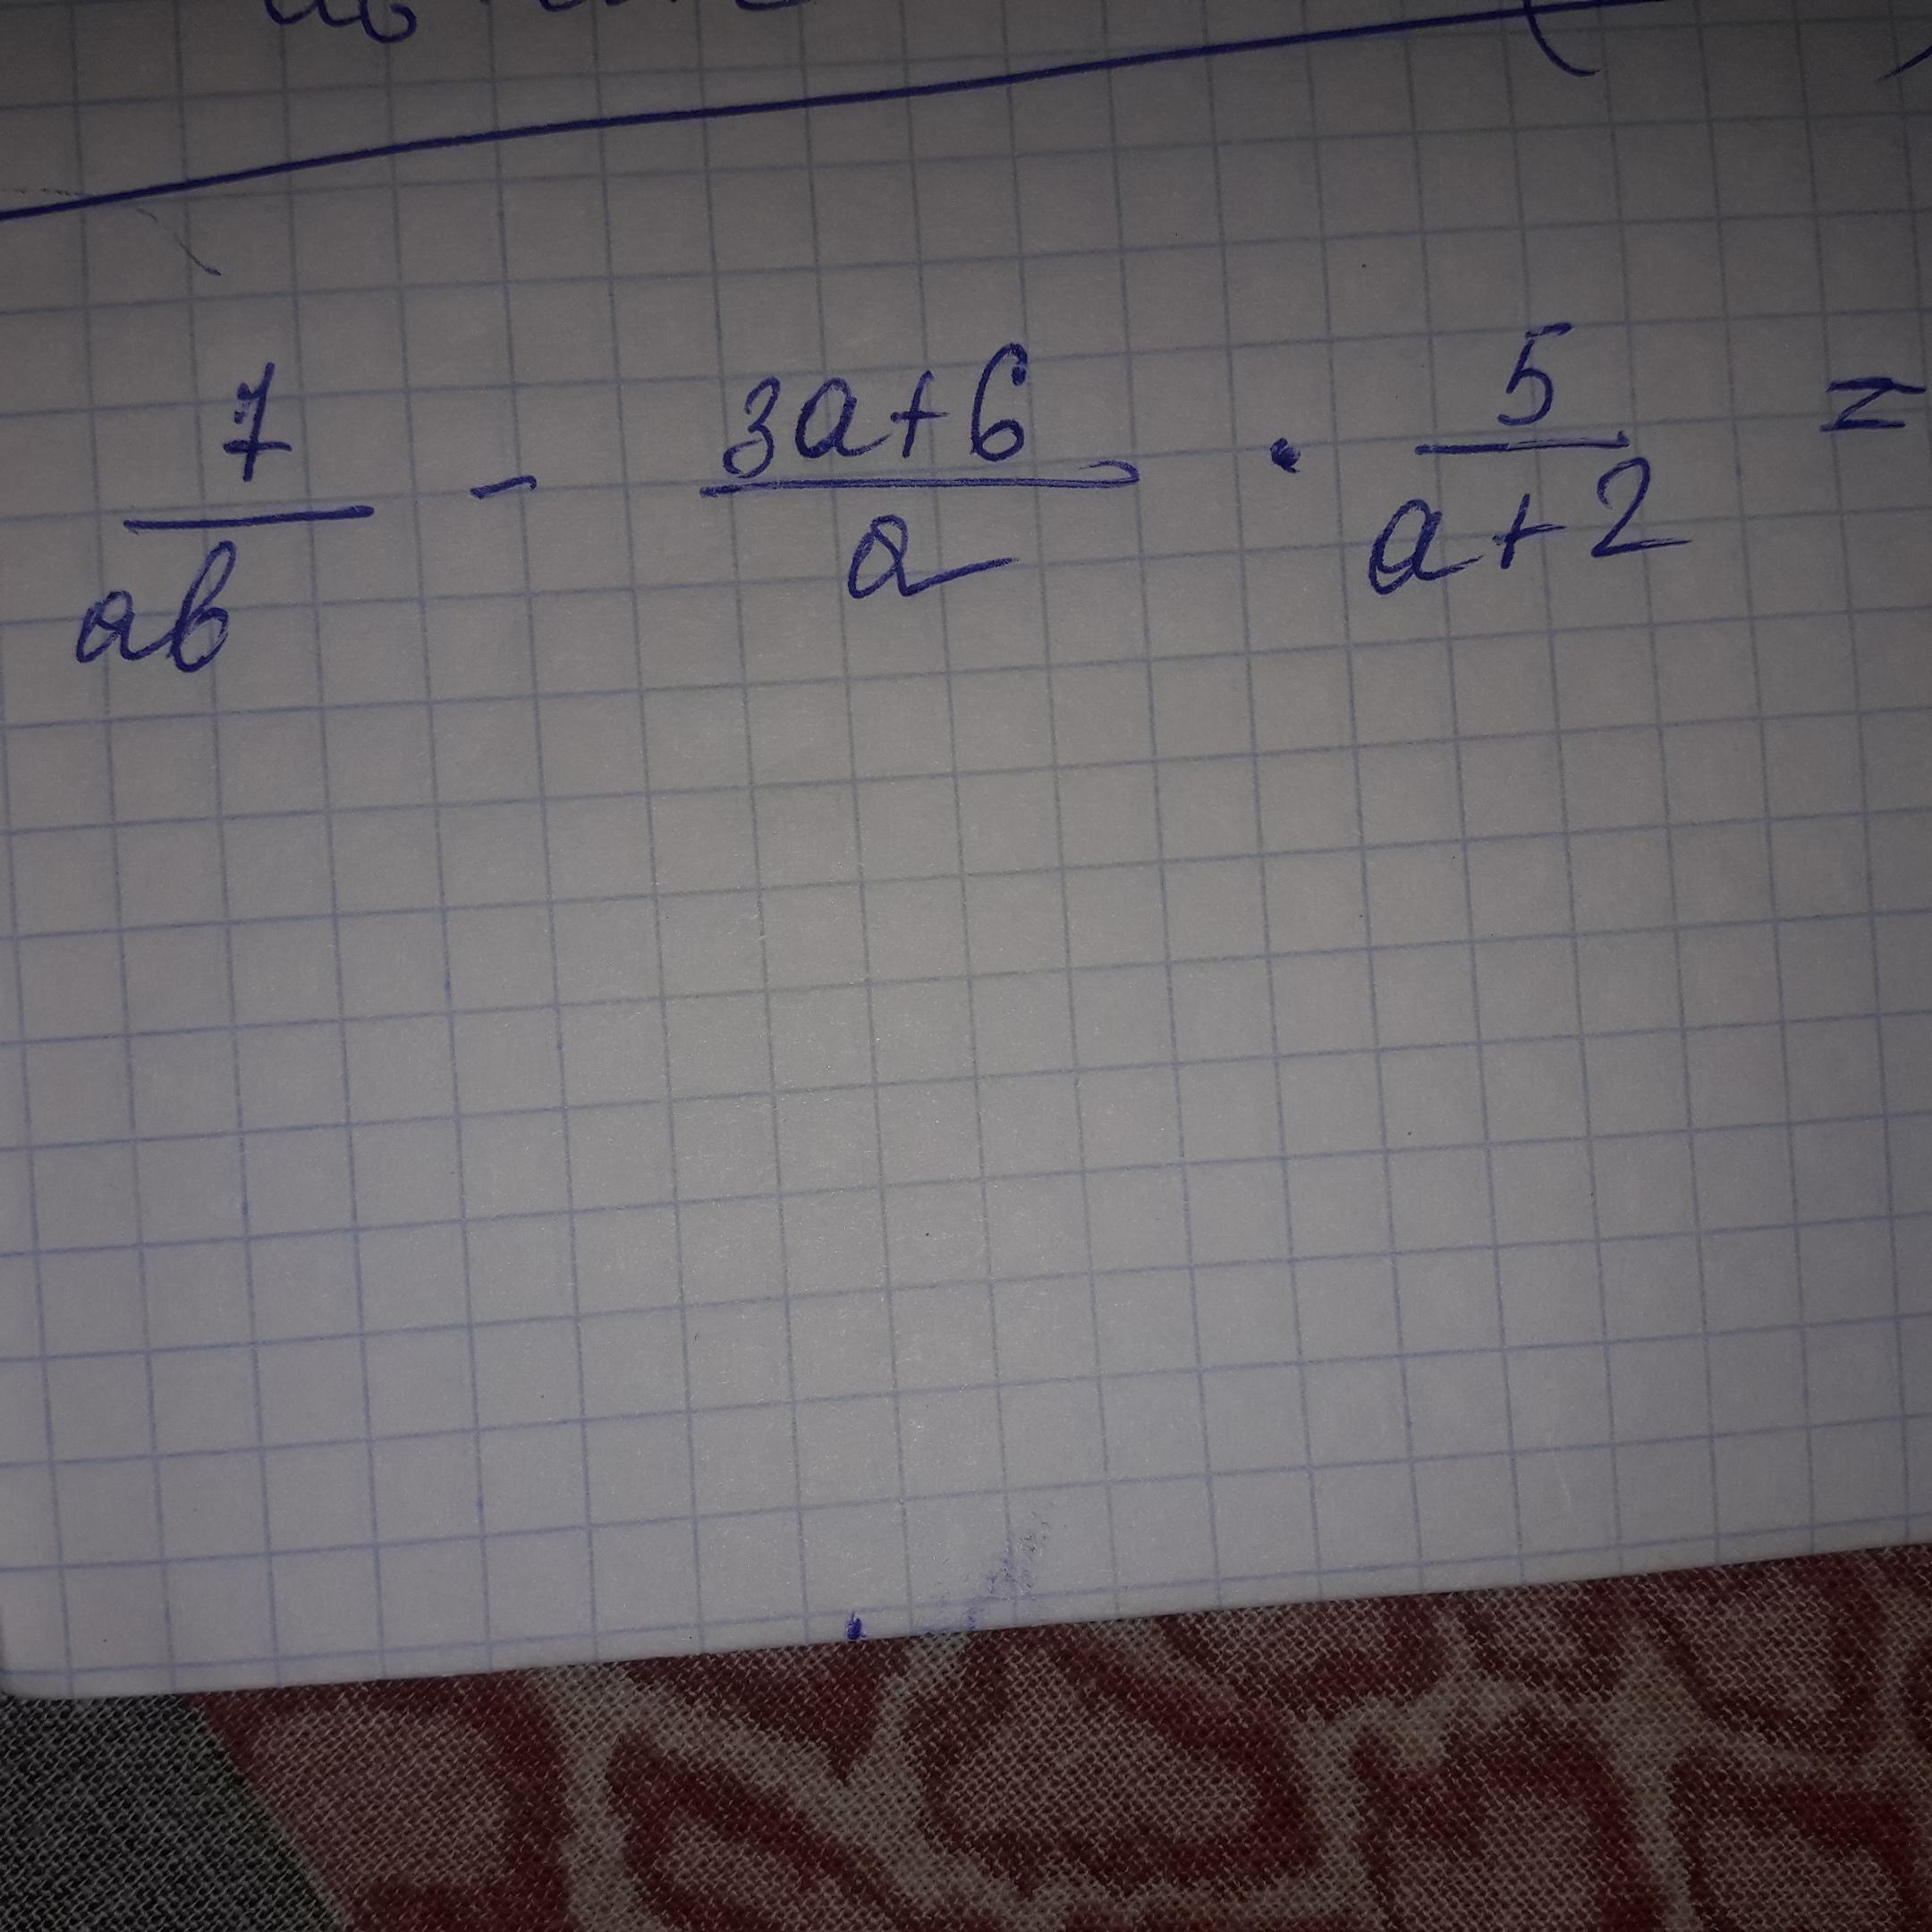 7/ab - 3a+6/a · 5/a+2 =